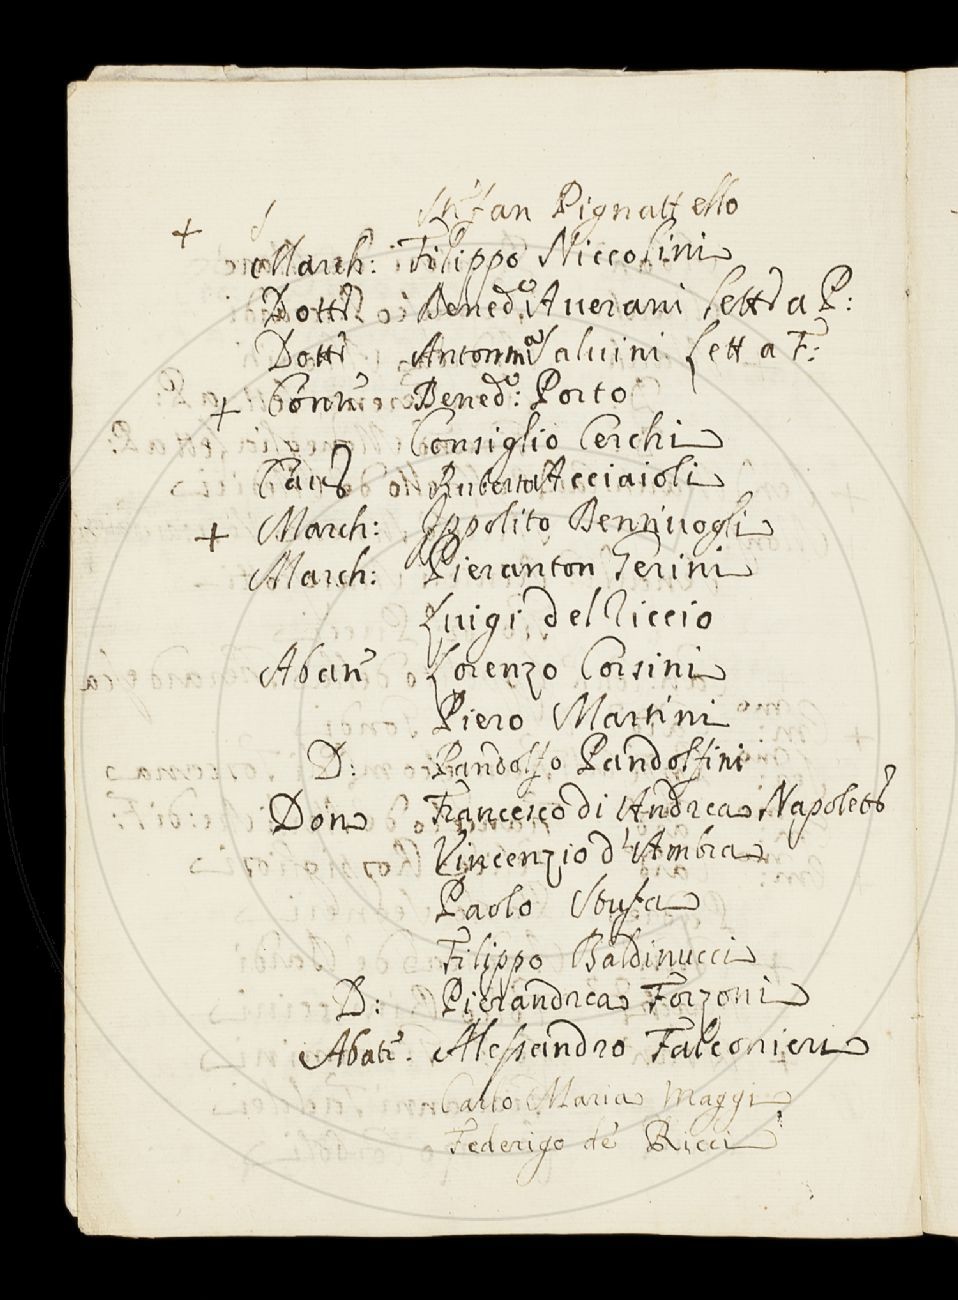 Stefan Pignattello
+ March: Filippo Niccolini
Dottr Bened:o Auerani Lettr a P:
Dottr Antonm:a Saluini Lett a F:
+ Bened:o Porto
Consiglio Cerchi
Cav Ruberto Acciaioli
+ March: Ippolito Bentiuogli
March: Pieranton Gerini
Luigi del Riccio
Abate Lorenzo Corsini
Piero Martini
D: Pandolfo Pandolfini
Don Francesco di Andrea Napolet
Vincenzio d'Ambra
Paolo Stufa
Filippo Baldinucci
D: Pierandrea Forzoni
Abate. Alessandro Falconieri
Carlo Maria Maggi
Federigo de Ricci